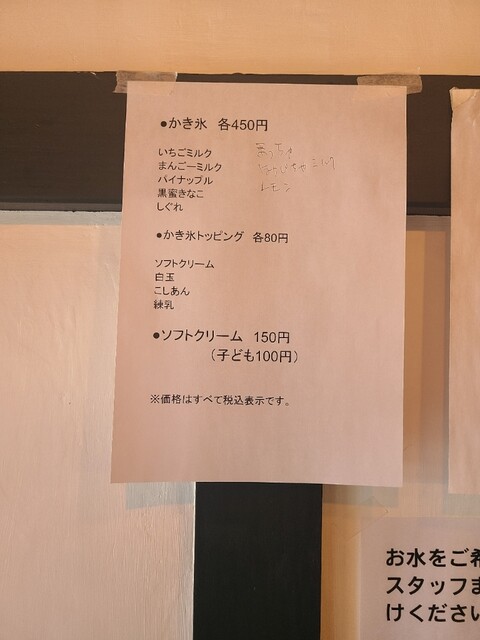 ●かき氷 各450円
いちごミルク
まんごーミルク
パイナップル
黒蜜きなこ
しぐれ
まっちゃ
ミルク
レモン
●かき氷トッピング 各80円
ソフトクリーム
白玉
こしあん
練乳
●ソフトクリーム 150円
(子ども100円)
※価格はすべて税込表示です。
お水をご希
スタッフま
けください